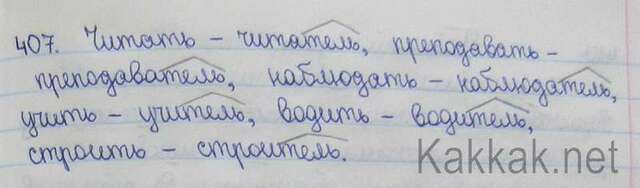 407. Читать – читатель, преподавать –
преподаватель, наблюдать – наблюдатель,
учить – учитель, водить – водитель,
строить – строитель.
Kakkak.net